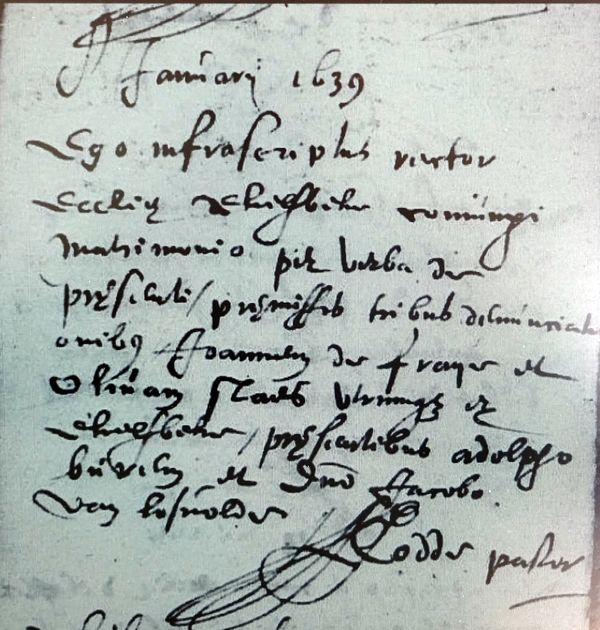 Januarij 1639
Ego infrascriptus rector
Eccliæ coniunxi
matrimonio per verba de
præsenti / præmissis tribus denunciati
onibus Joannem de fraye et
Olivam staes utrumque ex
/ præsentibus adolpho
et Dno Jacobo
van
pastor